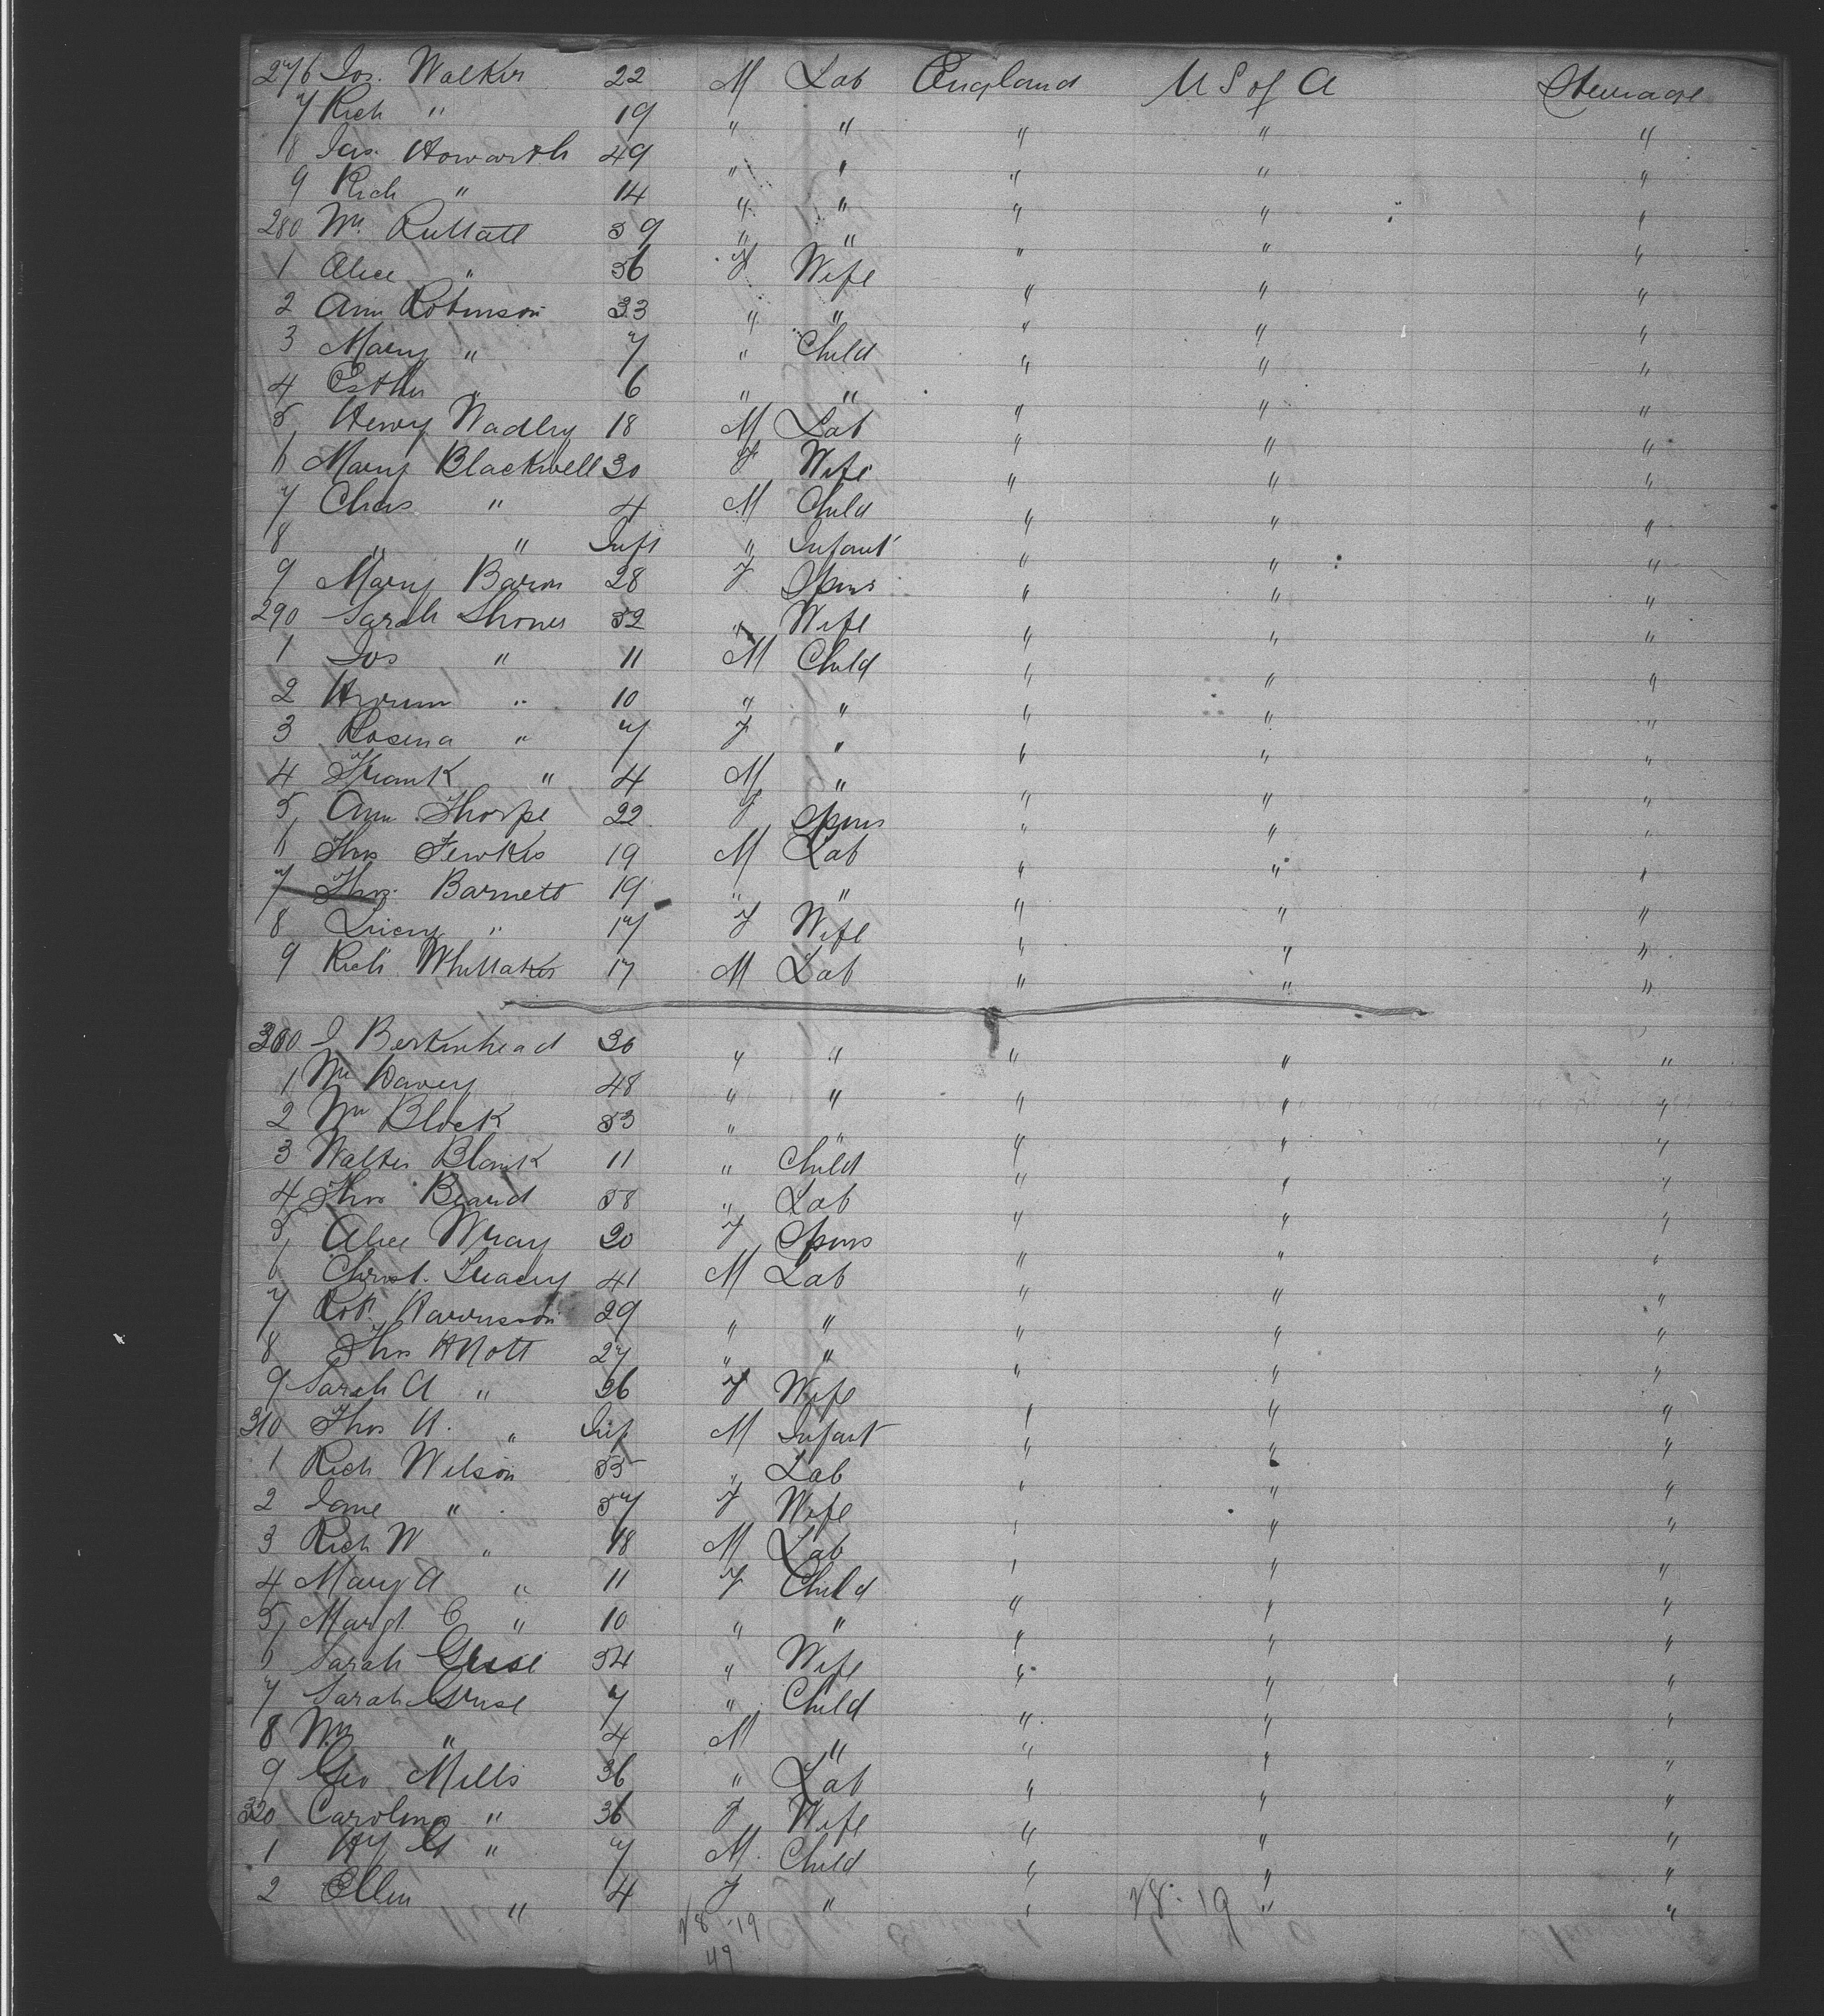 276 Jos. Walker 22 M Lab England U S of A Steerage
7 Rich " 19 " " " " "
8 Jas. Howarth 49 " " " " "
9 Rich " 14 " " " " "
280 Wm. 39 " " " " "
1 Alice " 36 F Wife " " "
2 Ann Robinson 33 " " " " "
3 Mary " 7 " Child " " "
4 Esther " 6 " " " " "
5 Henry Wadley 18 M Lab " " "
6 Mary Blackwell 30 F Wife " " "
7 Chas " 4 M Child " " "
8 " " Inft " Infant " " "
9 Mary Baron 28 F Spins " " "
290 Sarah Shones 32 " Wife " " "
1 Jos " 11 M Child " " "
2 Hyrum " 10 " " " " "
3 Rosena " 7 F " " " "
4 Frank " 4 M " " " "
5 Ann Thorpe 22 F Spins " " "
6 Thos Fewkes 19 M Lab " " "
7 Thos. Barnett 19 " " " " "
8 Lucy " 17 F Wife " " "
9 Rich Whittaker 17 M Lab " " "
300 J Berkinhead 36 " " " " "
1 Wm Davey 48 " " " " "
2 Wm Block 53 " " " " "
3 Walter Blank 11 " Child " " "
4 Thos Beard 58 " Lab " " "
5 Alice Wray 20 F Spins " " "
6 Christ. Treacy 41 M Lab " " "
7 Rob. 29 " " " " "
8 Thos H Nott 27 " " " " "
9 Sarah A " 26 F Wife " " "
310 Thos H. " Inf M Infant " " "
1 Rich Wilson 55 " Lab " " "
2 Jane " 57 F Wife " " "
3 Rich W " 18 M Lab " " "
4 Mary A " 11 F Child " " "
5 Margt E " 10 " " " " "
6 Sarah 34 " Wife " " "
7 Sarah 7 " Child " " "
8 Wm " 4 M " " " "
9 Geo Mills 36 " Lab " " "
320 Caroline " 36 F Wife " " "
1 Hy G " 7 M Child " " "
2 Ellen " 4 F " " " "
28-19 28-19
47